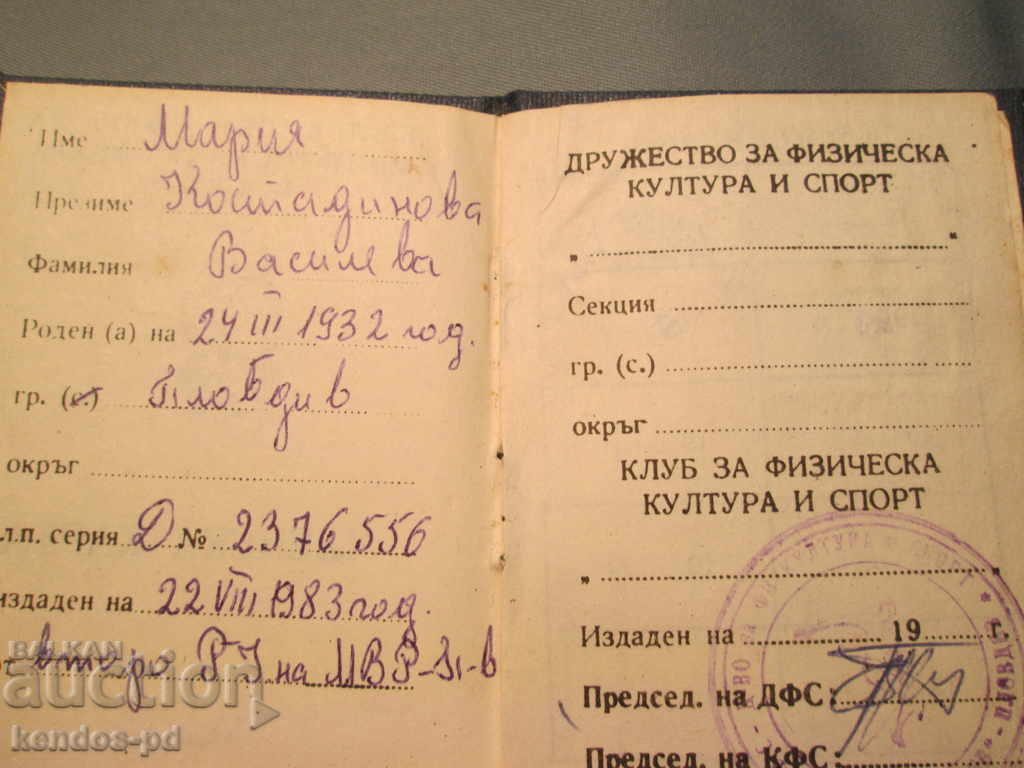 Име Мария
Презиме Костадинова
Фамилия Василева
Роден (а) на 24 III 1932 год.
гр. (с.) Пловдив
окръг
л.п. серия Д № 2376556
издаден на 22 VIII 1983 год.
от второ РУ на МВР-Пл-в
ДРУЖЕСТВО ЗА ФИЗИЧЕСКА
КУЛТУРА И СПОРТ
„ “
Секция
гр. (с.)
окръг
КЛУБ ЗА ФИЗИЧЕСКА
КУЛТУРА И СПОРТ
„ “
Издаден на 19 г.
Председ. на ДФС:
Председ. на КФС:
BALKAN
auction
kendos-pd